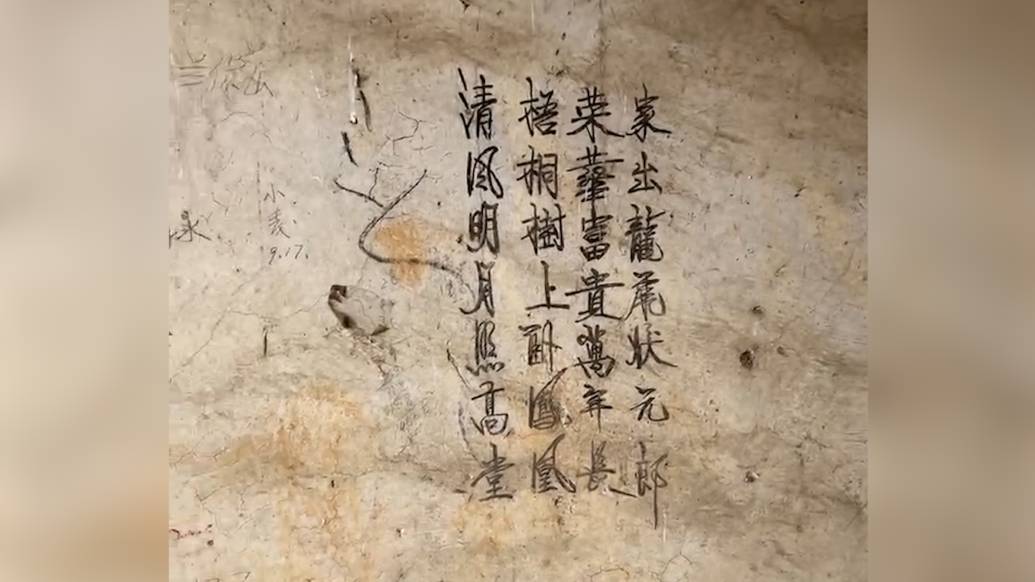 家出龍尾狀元郎
荣華富貴萬年長
梧桐樹上臥鳳凰
清風明月照高堂
小袁
9.17.